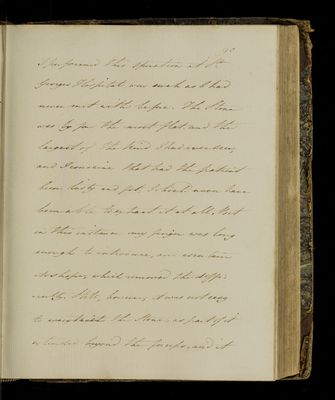 I performed this operation at St
Georges Hospital was such as I had
never met with before. The Stone
was by far the most flat, and the
largest of the kind I had ever seen,
and I conceive that had the patient
been lusty and fat I should never have
been able to extract it at all, but
in this instance my finger was long
enough to introduce, and ascertain
its shape, which removed the diffi-
culty. Still, however, it was not easy
to the Stone, as part of it
extended beyond the forceps, and it